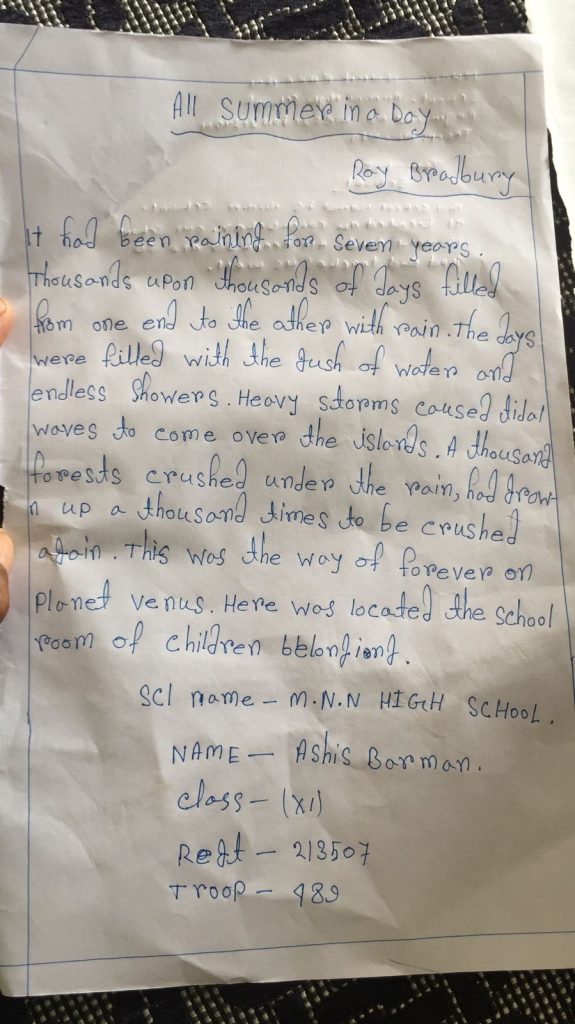 All Summer in a Day
Ray Bradbury
It had been raining for seven years.
Thousands upon thousands of days filled
from one end to the ather with rain. The days
were filled with the gush of water and
endless showers. Heavy storms caused tidal
waves to come over the islands. A thousand
forests crushed under the rain, had grow
n up a thousand times to be crushed
again. This was the way of forever on
Planet venus. Here was located the school
room of children belongiong.
Scl name - M.N.N HIGH SCHOOL.
NAME - Ashis Barman.
class - (XI)
Regt - 213507
Troop - 489